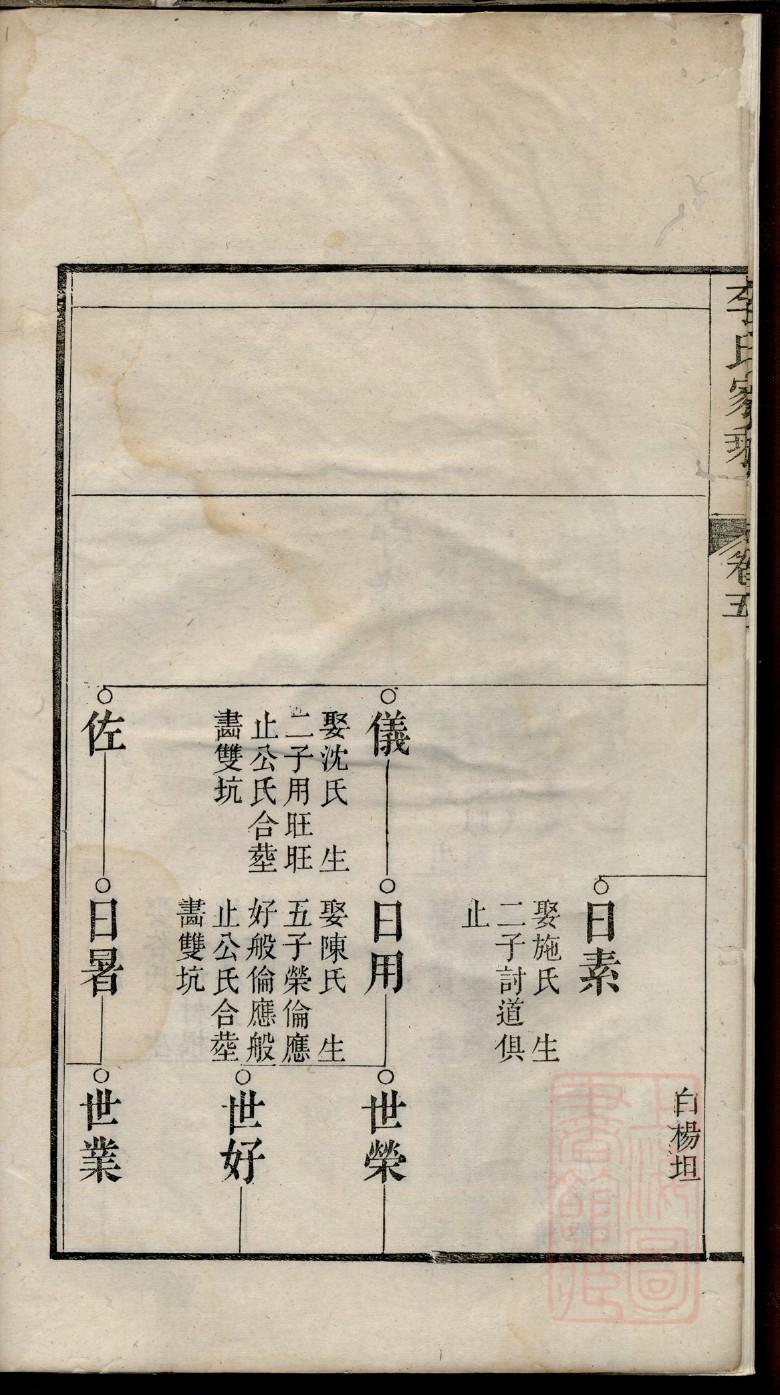 李氏家乘
卷五
白楊坦
日素
娶施氏 生
二子討道俱
止
儀
娶沈氏 生
二子用旺旺
止公氏合塟
畵雙坑
日用
娶陳氏 生
五子榮倫應
好般倫應般
止公氏合塟
畵雙坑
世榮
世好
佐
日暑
世業
上海圖
書館藏